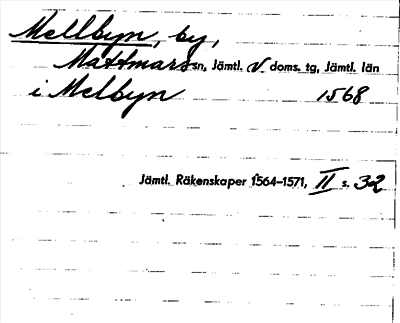 Mellbyn, by,
Mattmars sn, Jämtl. V doms. tg, Jämtl. län
i Melbyn 1568
Jämtl. Räkenskaper 1564–1571, II s. 32